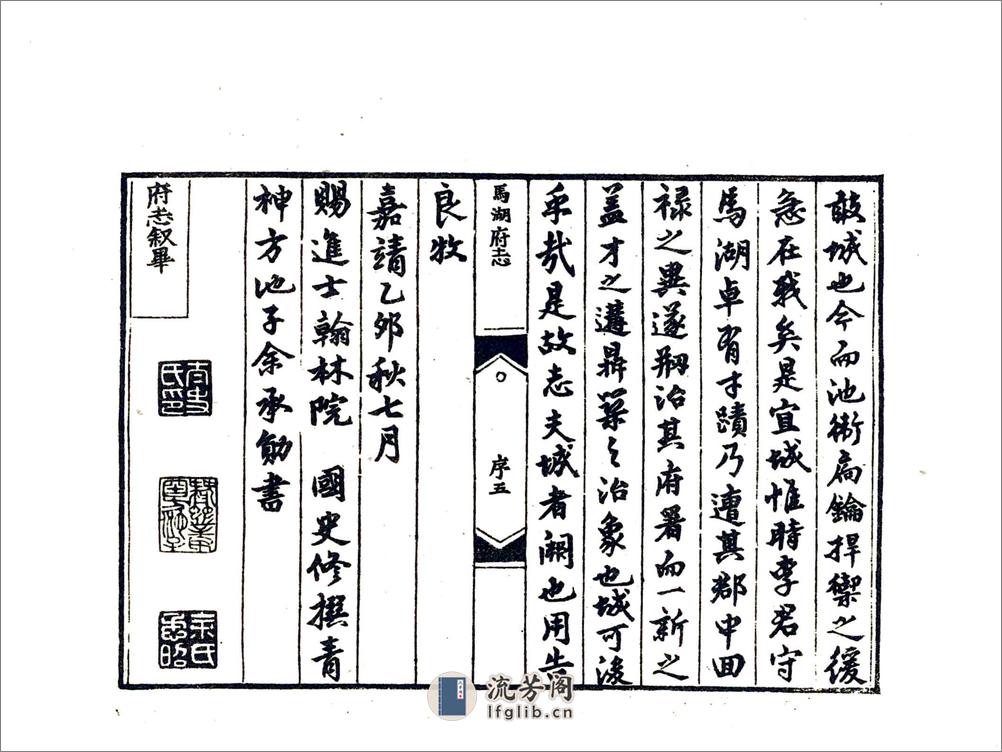 敢城也今而池衛扃鑰捍禦之緩
急在我矣是宜城惟時李君守
馬湖卓有才蹟乃遭其郡中回
祿之異遂剏治其府署而一新之
蓋才之遘鼎築之治象也城可後
乎哉是故志夫城者闕也用告
馬湖府志
序五
良牧
嘉靖乙卯秋七月
賜進士翰林院 國史修撰青
神方池子余承勛書
府志叙畢
太史
氏印
余氏
流芳阁
lfglib.cn